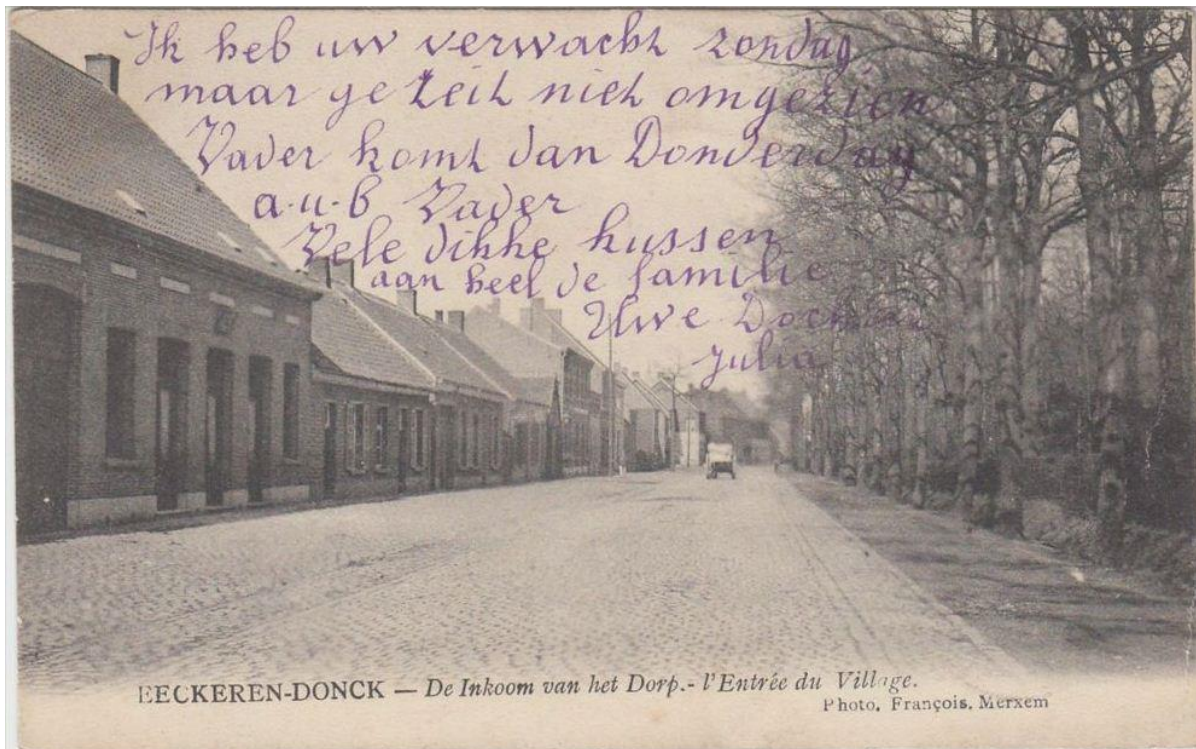 Ik heb uw verwacht zondag
maar ge zeit niet omgezien
Vader komt dan Donderdag
a.u.b Vader
Vele dikke kussen
aan heel de familie
Uwe Dochter
Julia
EECKEREN-DONCK — De Inkoom van het Dorp.- l'Entrée du Village.
Photo, François, Merxem